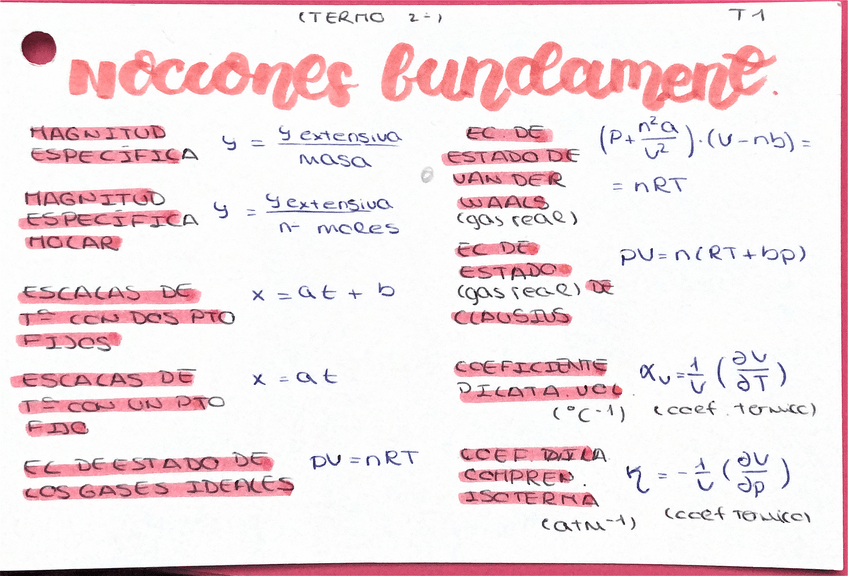 (TERMO 2º)
T1
NOCIONES fundament.
MAGNITUD
ESPECÍFICA
y = y extensiva / masa
MAGNITUD
ESPECÍFICA
MOLAR
y = y extensiva / nº moles
ESCALAS DE
Tª CON DOS PTO
FIJOS
x = at + b
ESCALAS DE
Tª CON UN PTO
FIJO
x = at
EC DE ESTADO DE
LOS GASES IDEALES
pV = nRT
EC. DE
ESTADO DE
VAN DER
WAALS
(gas real)
(P + n²a / V²) · (V - nb) =
= nRT
EC DE
ESTADO
(gas real) DE
CLAUSIUS
pV = n(RT + bp)
COEFICIENTE
DILATA. VOL.
(°C-1)
αv = 1/V (∂V/∂T)
(coef. termico)
COEF DILA
COMPREN.
ISOTERMA
(atm-1)
η = - 1/V (∂V/∂p)
(coef termico)